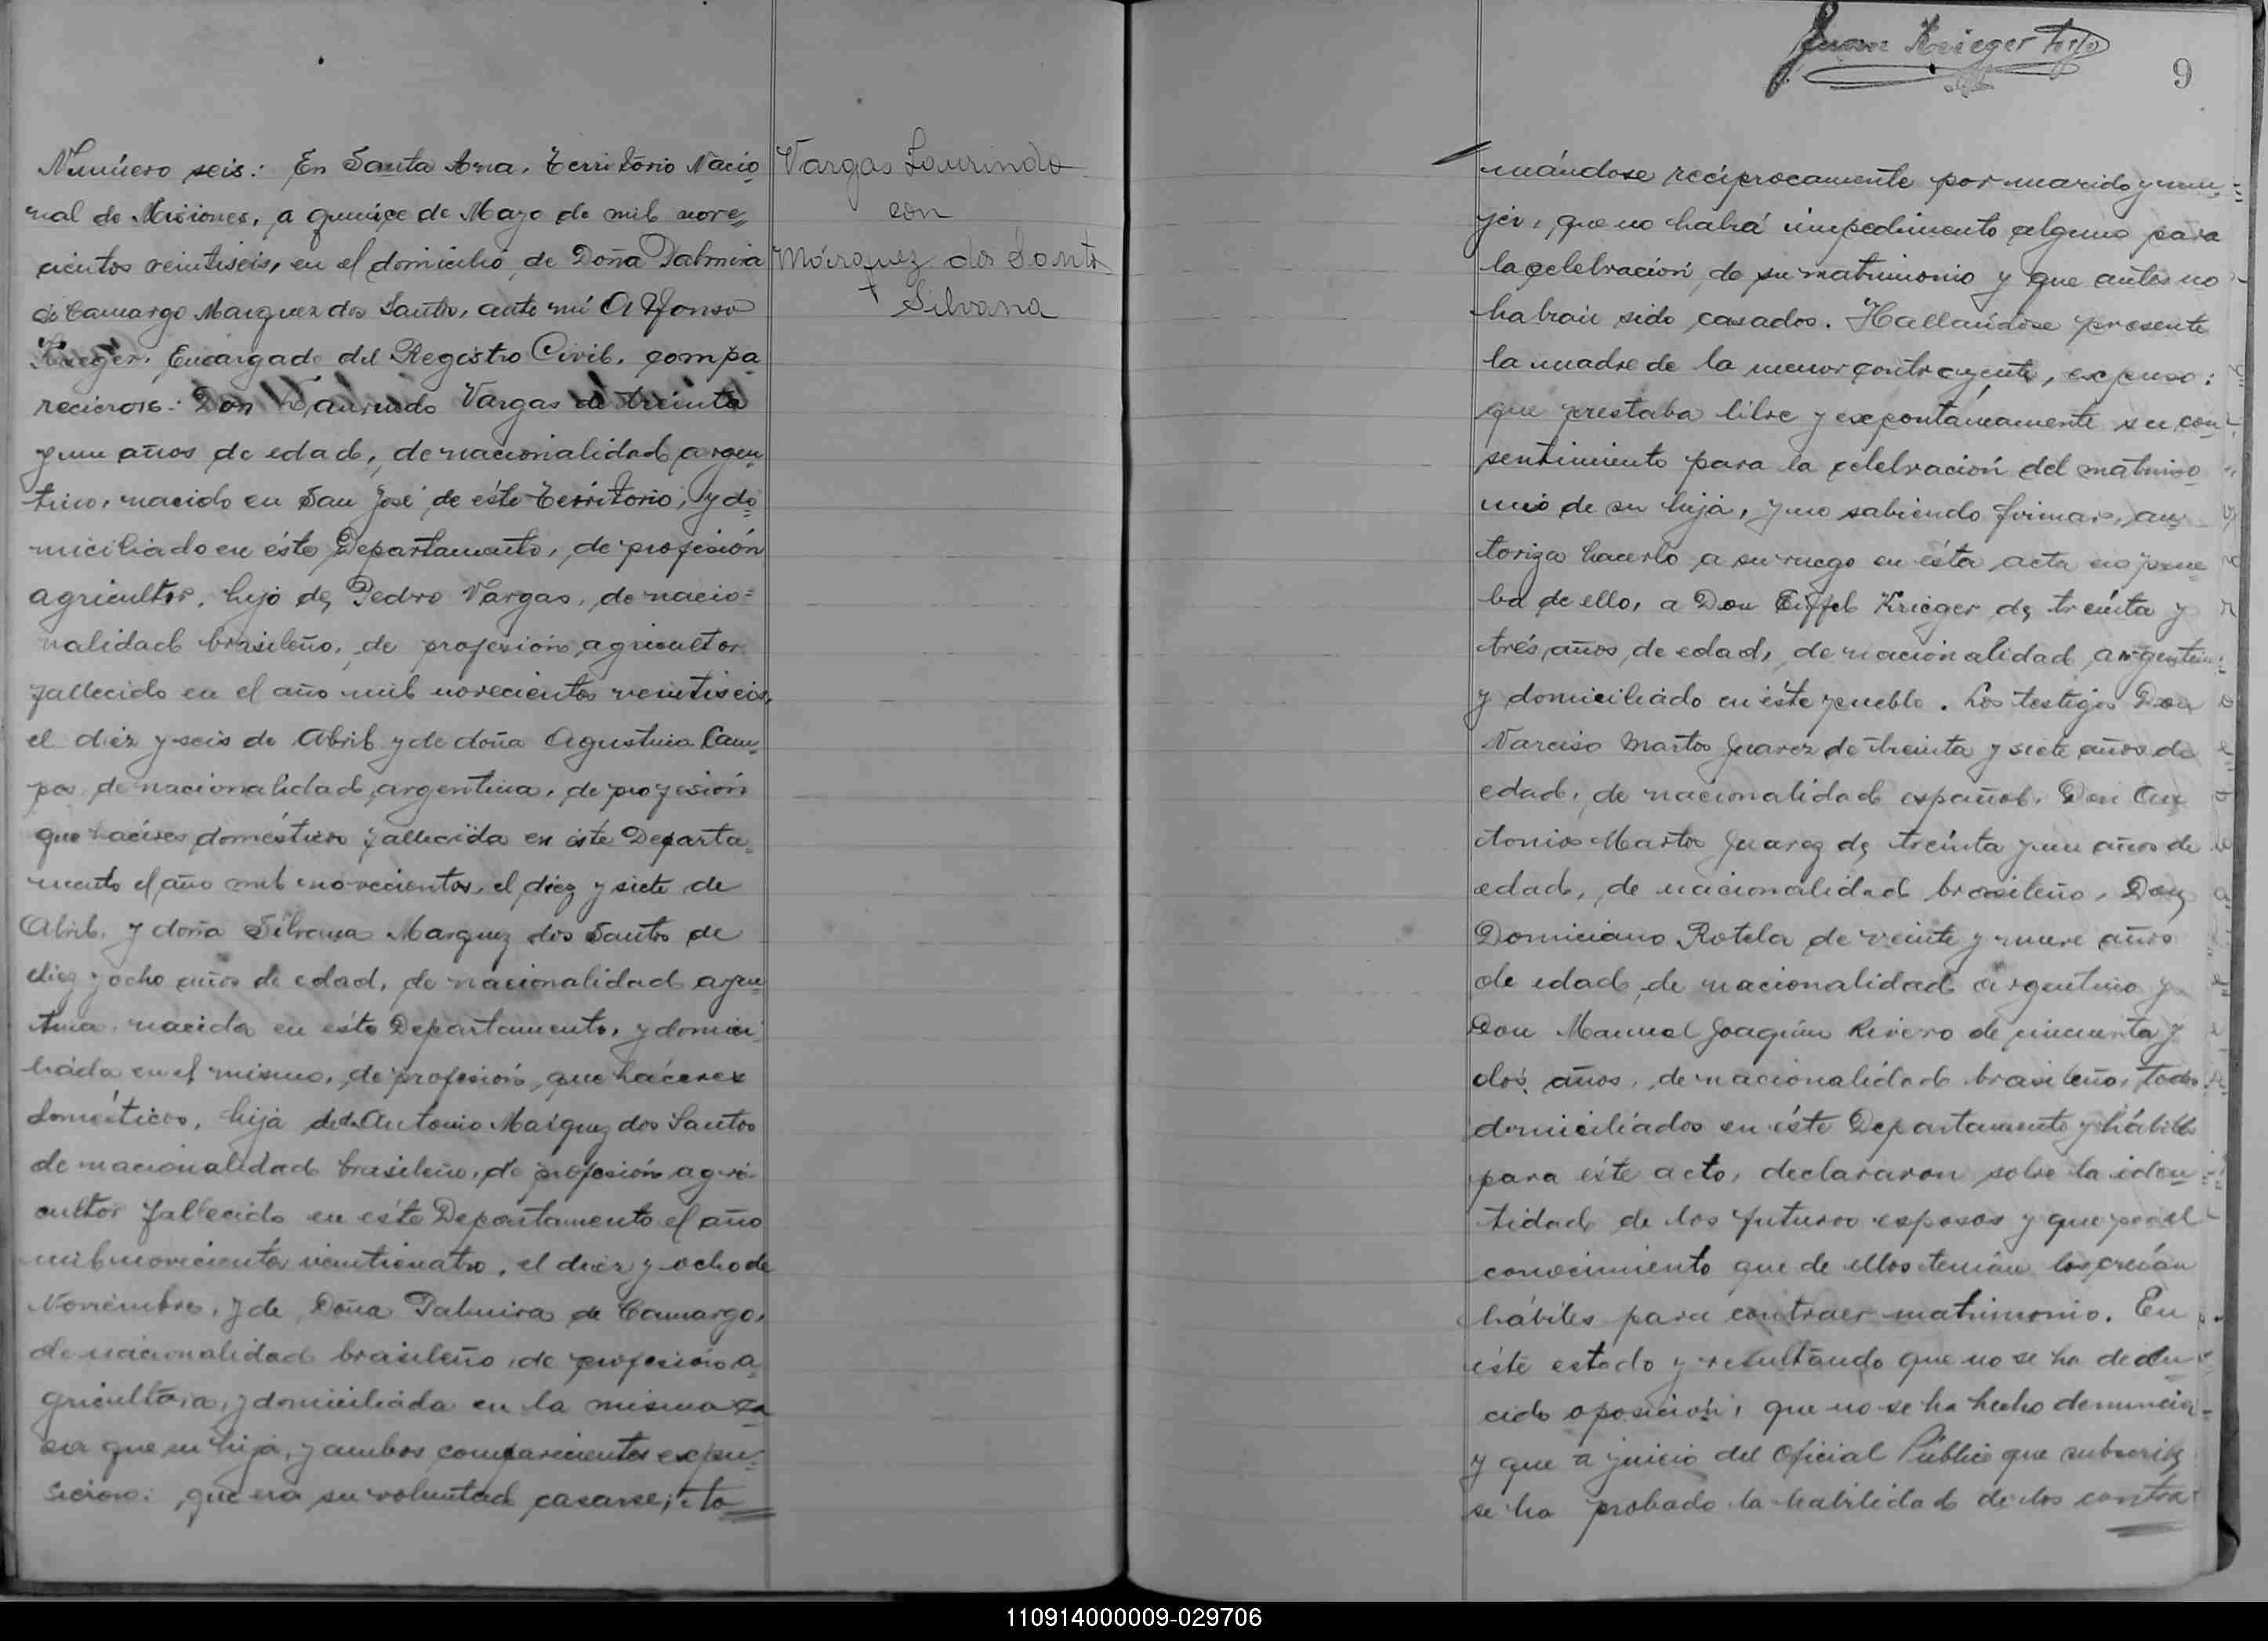 Número seis: En Santa Ana, Territorio Nacio
nal de Misiones, a quinçe de Mayo de mil nove
cientos veintiseis, en el domicilio de Doña Palmira
de Camargo Marquez dos Santos, ante mí Alfonso
Krieger, Encargado del Registro Civil, compa
recieron: Don Laurindo Vargas de treinta
y un años de edad, de nacionalidad argen
tino, nacido en San José de éste Territorio, y do
miciliado en éste Departamento, de profesión
agricultor, hijo de Pedro Vargas, de nacio=
nalidad brasileño, de profesión agricultor
fallecido en el año mil novecientos veintiseis,
el diez y seis de Abril y de doña Agustina Cam
pos, de nacionalidad argentina, de profesión
que haceres domésticos fallecida en éste Departa
mento el año mil novecientos, el diez y siete de
Abril, y doña Silvana Marquez dos Santos de
diez y ocho años de edad, de nacionalidad argen
tina, nacida en éste Departamento, y domici
liada en el mismo, de profesión, que háceres
domésticos, hija de Antonio Marquez dos Santos
de nacionalidad brasileño, de profesión agri
cultor fallecido en éste Departamento el año
mil novecientos veinticuatro, el diez y ocho de
Noviembre, y de Doña Palmira de Camargo,
de nacionalidad brasileño, de profesión a
gricultora, y domiciliada en la misma ca
sa que su hija, y ambos comparecientes expu
sieron: que era su voluntad casarse, to
Vargas Laurindo
con
Márquez dos Santos
Silvana
Juan Krieger
9
mándose recíprocamente por marido y mu
jer, que no había impedimento alguno para
la celebración de su matrimonio y que antes no
habían sido casados. Hallándose presente
la madre de la menor contrayente, expuso:
que prestaba libre y expontáneamente su con
sentimiento para la celebración del matrimo
nio de su hija, y no sabiendo firmar, au
toriza hacerlo a su ruego en ésta acta en prue
ba de ello, a Don Eiffel Krieger de treinta y
trés años de edad, de nacionalidad argentino
y domiciliado en éste pueblo. Los testigos Don
Narciso Martos Juarez de treinta y siete años de
edad, de nacionalidad español, Don An
tonio Martos Juarez de treinta y un años de
edad, de nacionalidad brasileño, Don
Domiciano Rotela de veinte y nueve años
de edad, de nacionalidad argentino y
Don Manuel Joaquim Rivero de cincuenta y
dos años, de nacionalidad brasileño, todos
domiciliados en éste Departamento y hábiles
para éste acto, declararon sobre la iden
tidad de los futuros esposos y que por el
conocimiento que de ellos tenían los creían
hábiles para contraer matrimonio. En
éste estado y resultando que no se ha dedu
cido oposición, que no se ha hecho denuncia
y que a juicio del Oficial Público que subscribe
se ha probado la habilidad de los contra
110914000009-029706